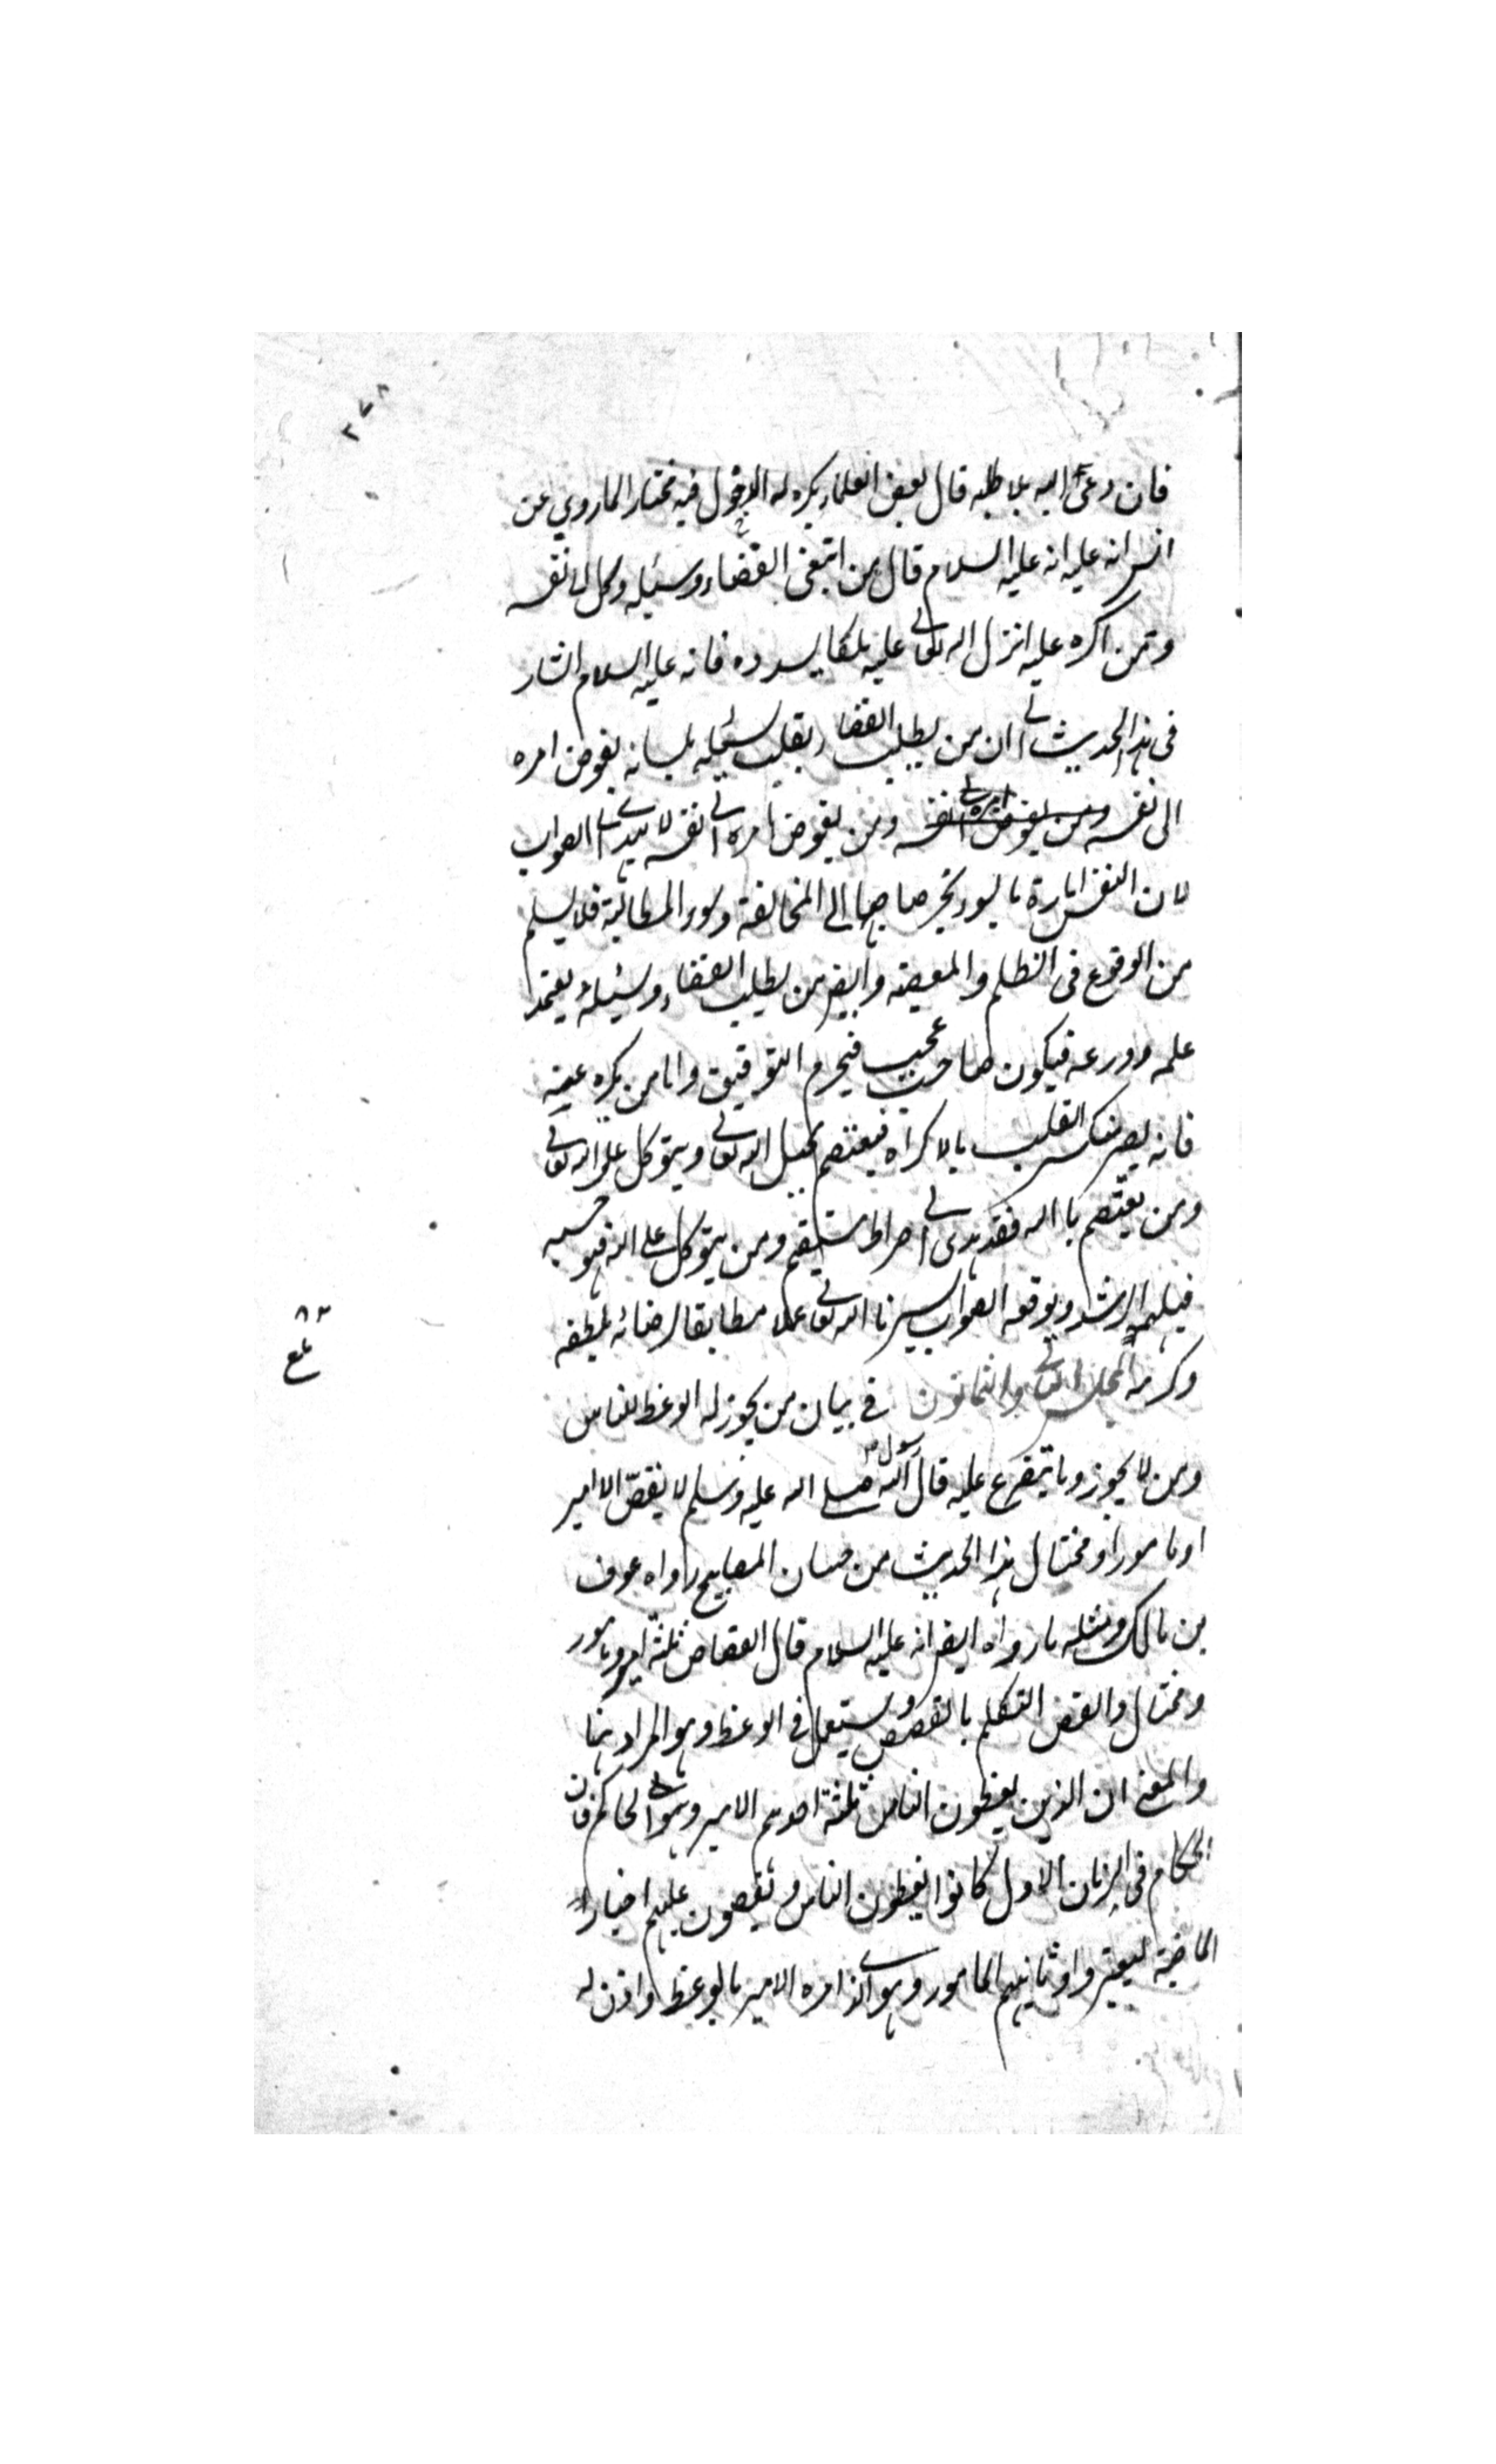 ٢٧٨
فان دعى اليه بلا طلبه قال بعض العلماء يكره له الدخول فيه مختارا لما روي عن
انس انه عليه انه عليه السلام قال من ابتغى القضاء وسئله وكل الى نفسه
ومن اكره عليه انزل الله تعالى عليه ملكا يسدده فانه عليه السلام اشار
في هذا الحديث الى ان من يطلب القضاء بقلبه يسئله بلسانه يفوض امره
الى نفسه ومن يفوض امره الى نفسه ومن يفوض امره الى نفسه لا يهتدى الى الصواب
لان النفس امارة بالسوء يجر صاحبها الى المخالفة وسوء المطالبة فلا يسلم
من الوقوع في الظلم والمعصية وايضا من يطلب القضاء وسئله يعتمد
علمه وورعه فيكون صاحب عجب فيحرم التوفيق واما من يكره عليه
فانه يصير منكسر القلب بالاكراه فيعتصم بحبل الله تعالى ويتوكل على الله تعالى
ومن يعتصم بالله فقد هدى الى صراط مستقيم ومن يتوكل على الله فهو حسبه
فيلهم الرشد ويوفقه الصواب يسرنا الله تعالى عملا مطابقا لرضائه بلطفه
وكرمه المجلس الثاني والثمانون في بيان من يجوز له الوعظ للناس
٨٢
ومن لا يجوز وما يتفرع عليه قال رسول الله صلى الله عليه وسلم لا يقصّ الا امير
او مامور او مختال هذا الحديث من حسان المصابيح رواه عوف
بن مالك ومثله ما رواه ايضا انه عليه السلام قال القصاص ثلثة امير ومامور
ومختال والقص التكلم بالقصص ويستعمل في الوعظ وهو المراد هنا
والمعنى ان الذين يعظون الناس ثلثة احدهم الامير وهو الحاكم فان
الحكام في الزمان الاول كانوا يعظون الناس ويقصون عليهم اخبار
الماضية ليعتبروا وثانيهم المامور وهو الذى امره الامير بالوعظ واذن له